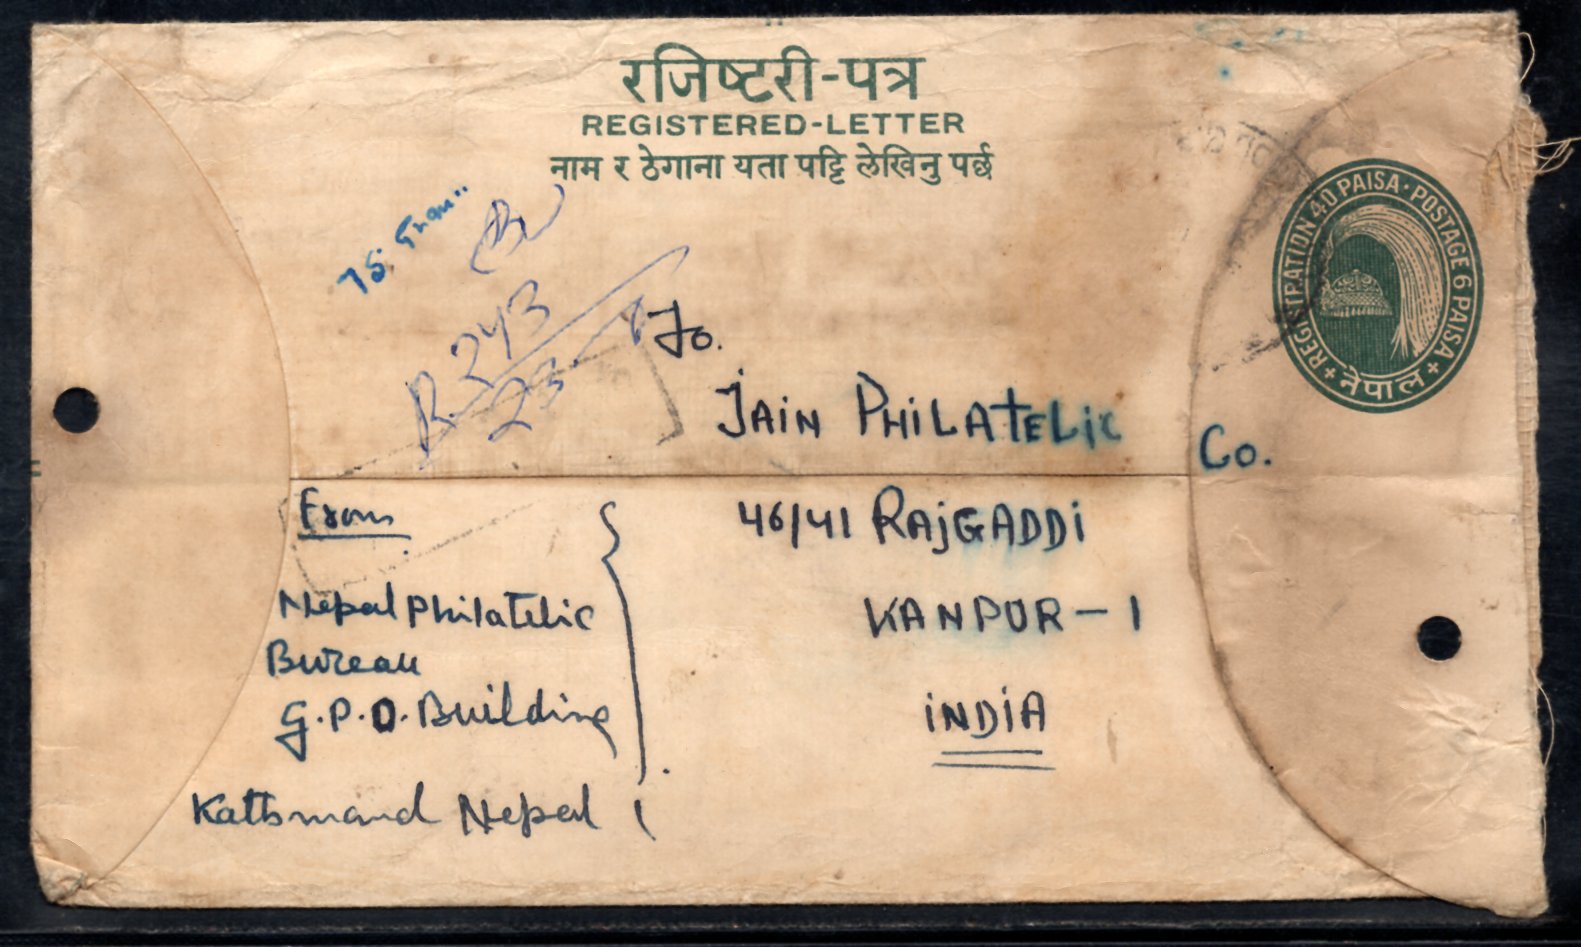 रजिष्टरी-पत्र
REGISTERED-LETTER
नाम र ठेगाना यता पट्टि लेखिनु पर्छ
REGISTRATION 40 PAISA · POSTAGE 6 PAISA
नेपाल
R. 243
23
To.
JAIN PHILATELIC Co.
46/41 RAJGADDI
KANPUR - 1
INDIA
From
Nepal Philatelic
Bureau
G.P.O. Building
Kattsmand Nepal